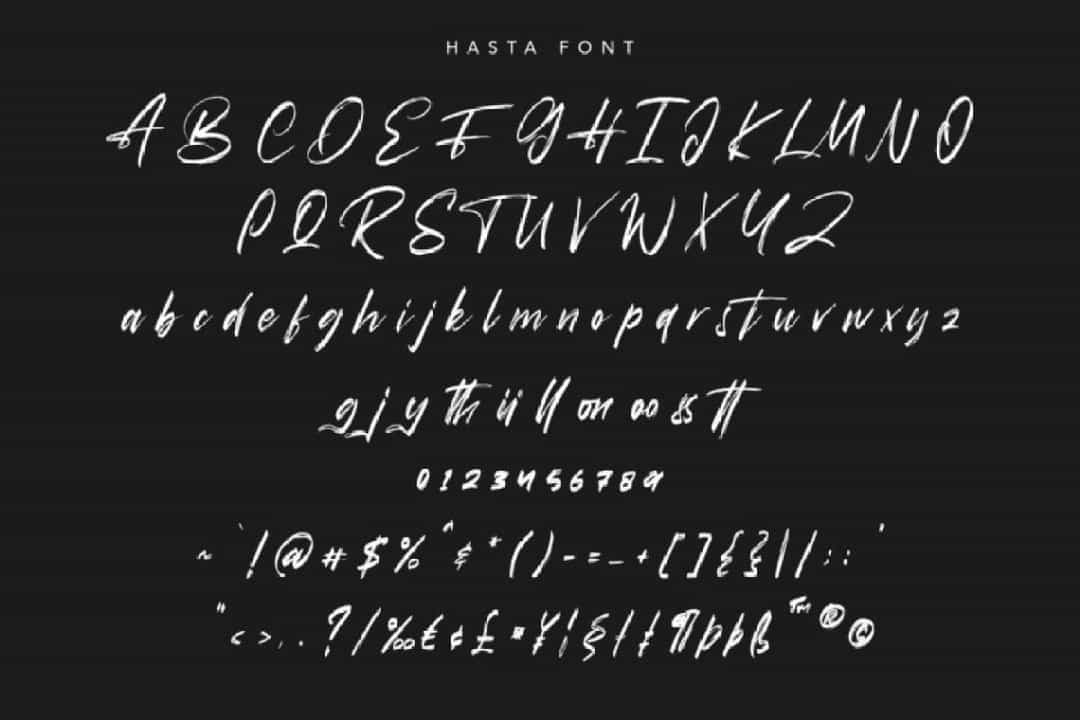 HASTA FONT
A B C D E F G H I J K L M N O
P Q R S T U V W X Y Z
a b c d e f g h i j k l m n o p q r s t u v w x y z
g j y th ii ll on oo ss tt
0 1 2 3 4 5 6 7 8 9
~ ` ! @ # $ % ^ & * ( ) - = _ + [ ] { } | / : ; '
" < > , . ? / ‰ € ¢ £ ¤ ¥ ¦ § † ‡ ¶ Þ þ ß ™ ® ©